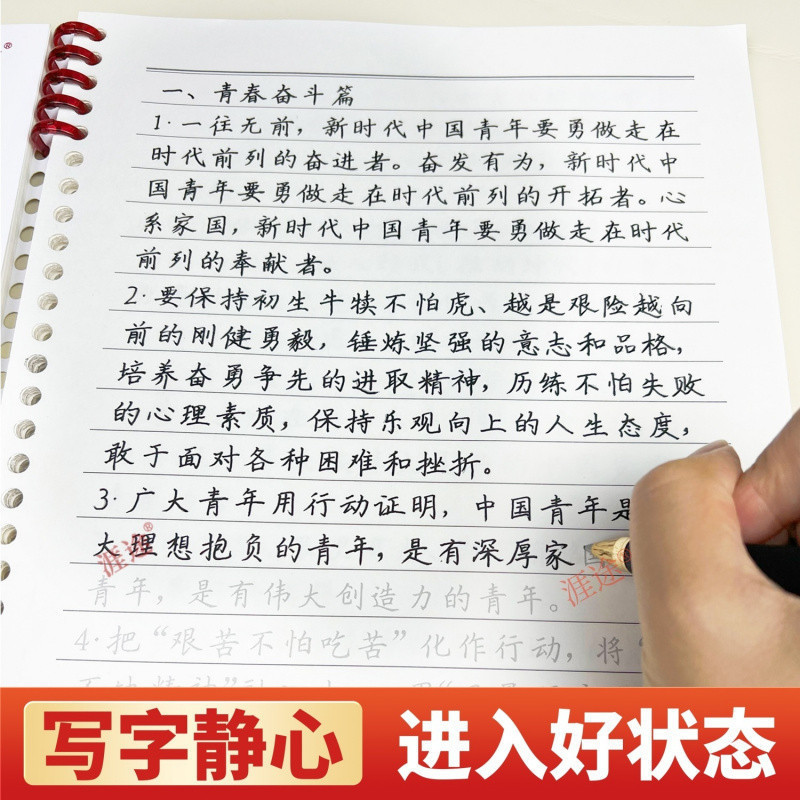 一、青春奋斗篇
1·一往无前，新时代中国青年要勇做走在
时代前列的奋进者。奋发有为，新时代中
国青年要勇做走在时代前列的开拓者。心
系家国，新时代中国青年要勇做走在时代
前列的奉献者。
2·要保持初生牛犊不怕虎、越是艰险越向
前的刚健勇毅，锤炼坚强的意志和品格，
培养奋勇争先的进取精神，历练不怕失败
的心理素质，保持乐观向上的人生态度，
敢于面对各种困难和挫折。
3·广大青年用行动证明，中国青年是
大理想抱负的青年，是有深厚家
青年，是有伟大创造力的青年。
4·把“艰苦不怕吃苦”化作行动，将“
涯途®
涯途
写字静心 进入好状态